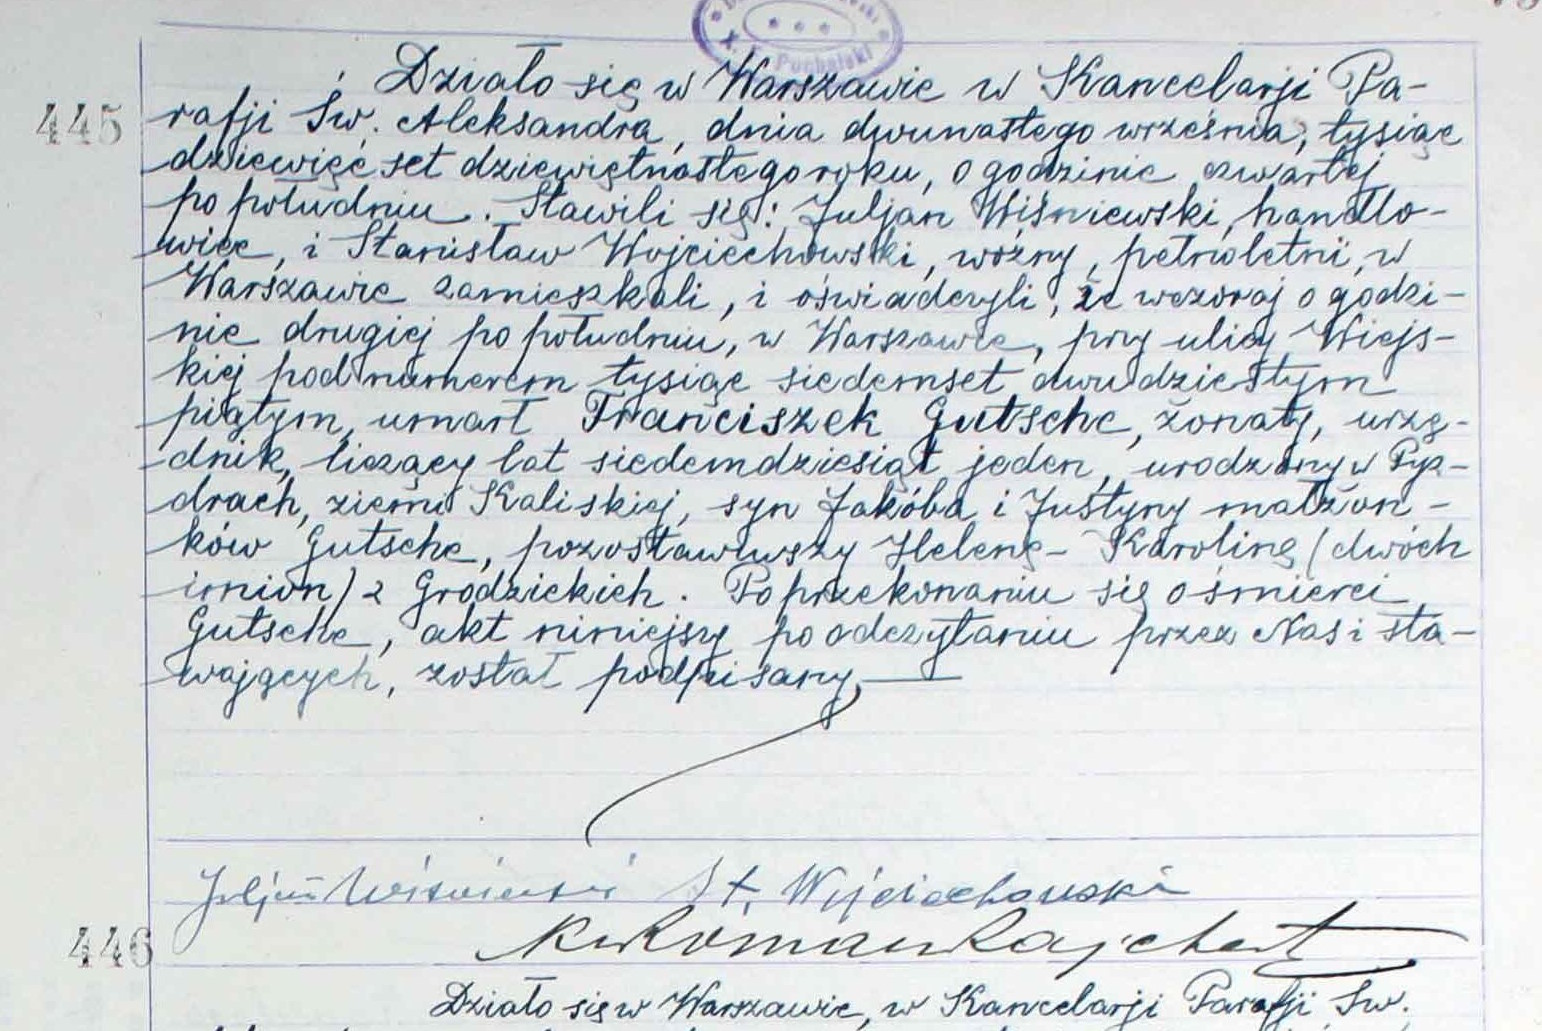 X. F. Puchalski
Działo się w Warszawie w Kancelarji Pa-
445 rafji Św. Aleksandra, dnia dwunastego września, tysiąc
dziewięćset dziewiętnastego roku, o godzinie czwartej
po południu. Stawili się: Juljan Wiśniewski, handlo-
wiec, i Stanisław Wojciechowski, woźny, pełnoletni, w
Warszawie zamieszkali, i oświadczyli, że wczoraj o godzi-
nie drugiej po południu, w Warszawie, przy ulicy Wiejs-
kiej pod numerem tysiąc siedemset dwudziestym
piątym, umarł Franciszek Gutsche, żonaty, urzę-
dnik, liczący lat siedemdziesiąt jeden, urodzony w Pyz-
drach, ziemi Kaliskiej, syn Jakóba i Justyny małżon-
ków Gutsche, pozostawiwszy Helenę-Karolinę (dwóch
imion) z Grodzickich. Po przekonaniu się o śmierci
Gutsche, akt niniejszy po odczytaniu przez Nas i sta-
wających, został podpisany
Juljan Wiśniewski St. Wojciechowski
446 Roman Rajchert
Działo się w Warszawie, w Kancelarji Parafji Św.